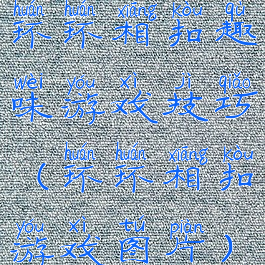 huán huán xiāng kòu qù
环环相扣趣
wèi yóu xì jì qiǎo
味游戏技巧
huán huán xiāng kòu
(环环相扣
yóu xì tú piàn
游戏图片)